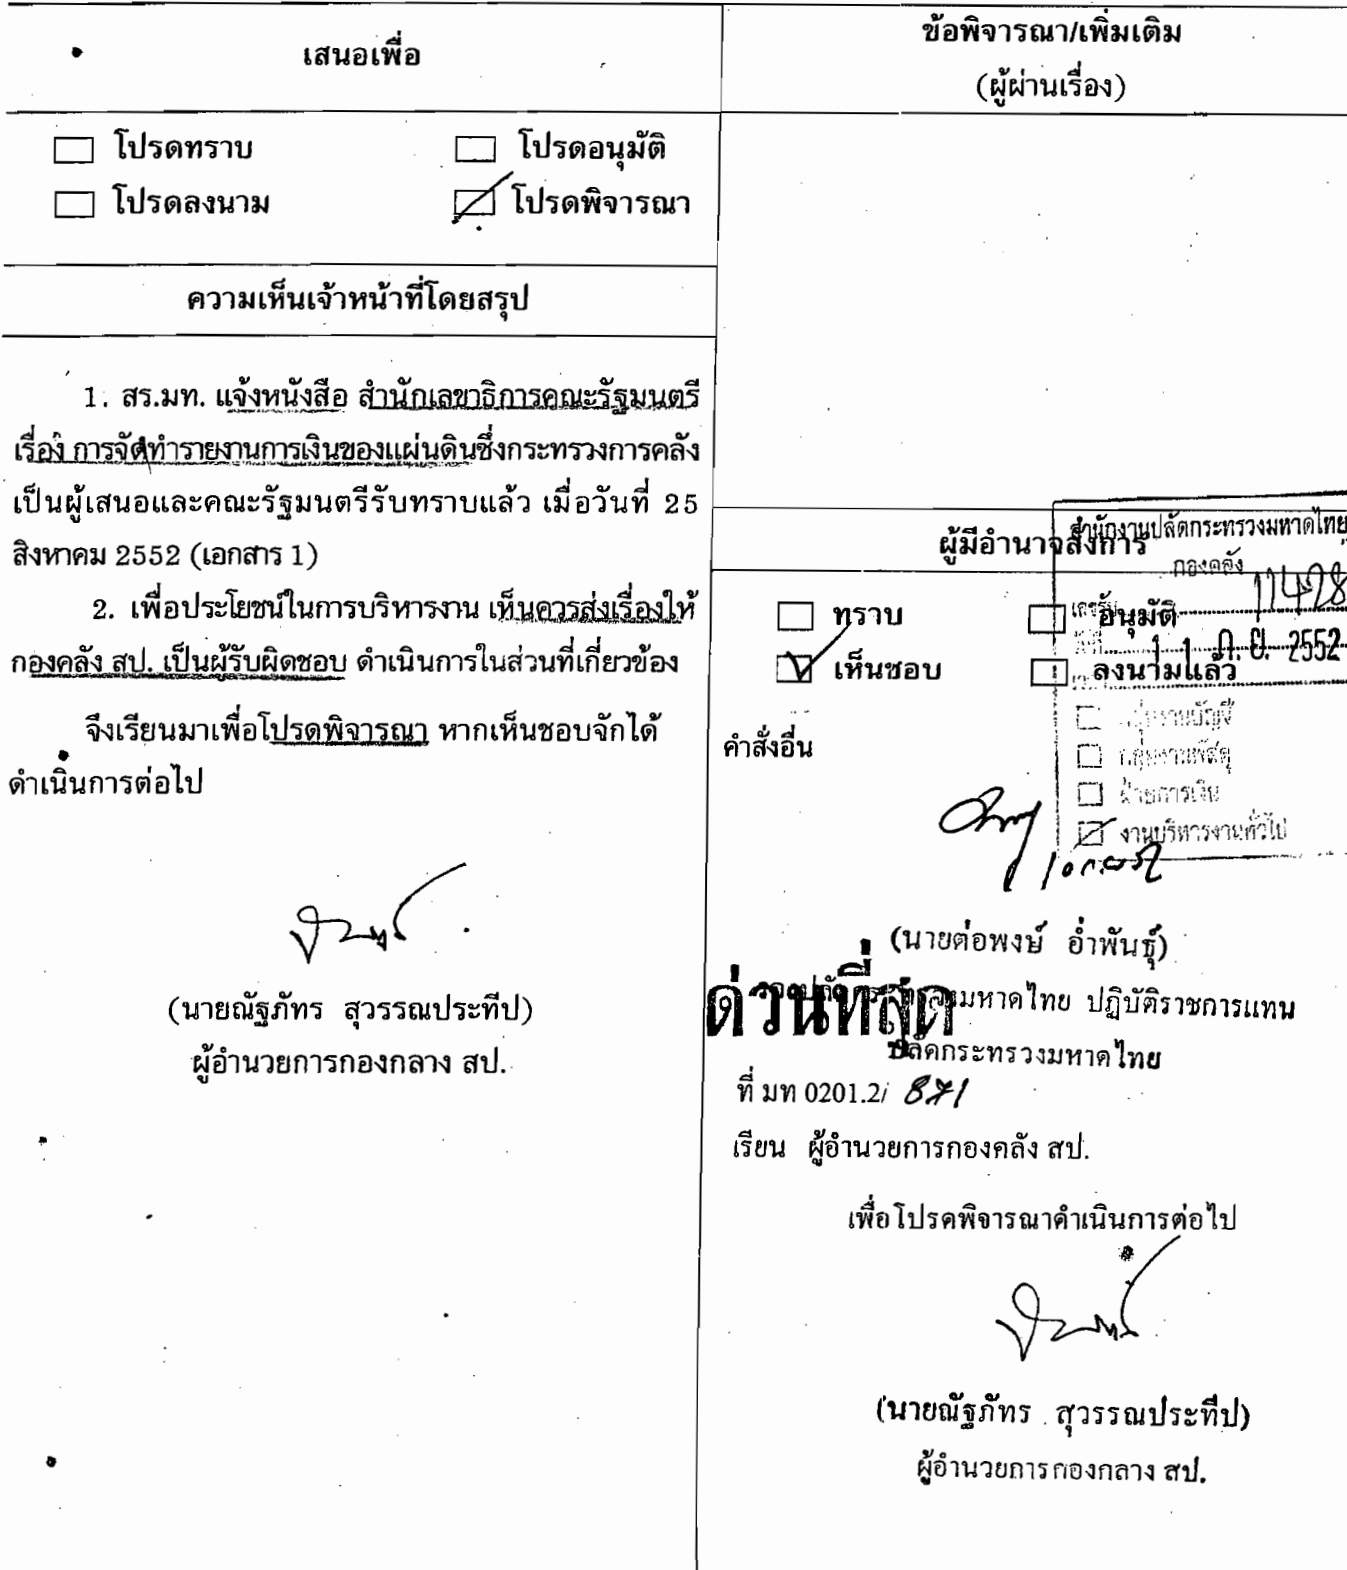 เสนอเพื่อ
☐ โปรดทราบ ☐ โปรดอนุมัติ
☐ โปรดลงนาม ☑ โปรดพิจารณา
ความเห็นเจ้าหน้าที่โดยสรุป
1. สร.มท. แจ้งหนังสือ สำนักเลขาธิการคณะรัฐมนตรี
เรื่อง การจัดทำรายงานการเงินของแผ่นดินซึ่งกระทรวงการคลัง
เป็นผู้เสนอและคณะรัฐมนตรีรับทราบแล้ว เมื่อวันที่ 25
สิงหาคม 2552 (เอกสาร 1)
2. เพื่อประโยชน์ในการบริหารงาน เห็นควรส่งเรื่องให้
กองคลัง สป. เป็นผู้รับผิดชอบ ดำเนินการในส่วนที่เกี่ยวข้อง
จึงเรียนมาเพื่อโปรดพิจารณา หากเห็นชอบจักได้
ดำเนินการต่อไป
(นายณัฐภัทร สุวรรณประทีป)
ผู้อำนวยการกองกลาง สป.
ข้อพิจารณา/เพิ่มเติม
(ผู้ผ่านเรื่อง)
ผู้มีอำนาจสั่งการ
☐ ทราบ ☐ อนุมัติ
☑ เห็นชอบ ☐ ลงนามแล้ว
คำสั่งอื่น
สำนักงานปลัดกระทรวงมหาดไทย
กองคลัง
เลขรับ 11428
11 ก.ย. 2552
☐ กลุ่มงานบัญชี
☐ กลุ่มงานพัสดุ
☐ ฝ่ายการเงิน
☑ งานบริหารงานทั่วไป
(นายต่อพงษ์ อ่ำพันธุ์)
รองปลัดกระทรวงมหาดไทย ปฏิบัติราชการแทน
ปลัดกระทรวงมหาดไทย
ด่วนที่สุด
ที่ มท 0201.2/ 871
เรียน ผู้อำนวยการกองคลัง สป.
เพื่อโปรดพิจารณาดำเนินการต่อไป
(นายณัฐภัทร สุวรรณประทีป)
ผู้อำนวยการกองกลาง สป.